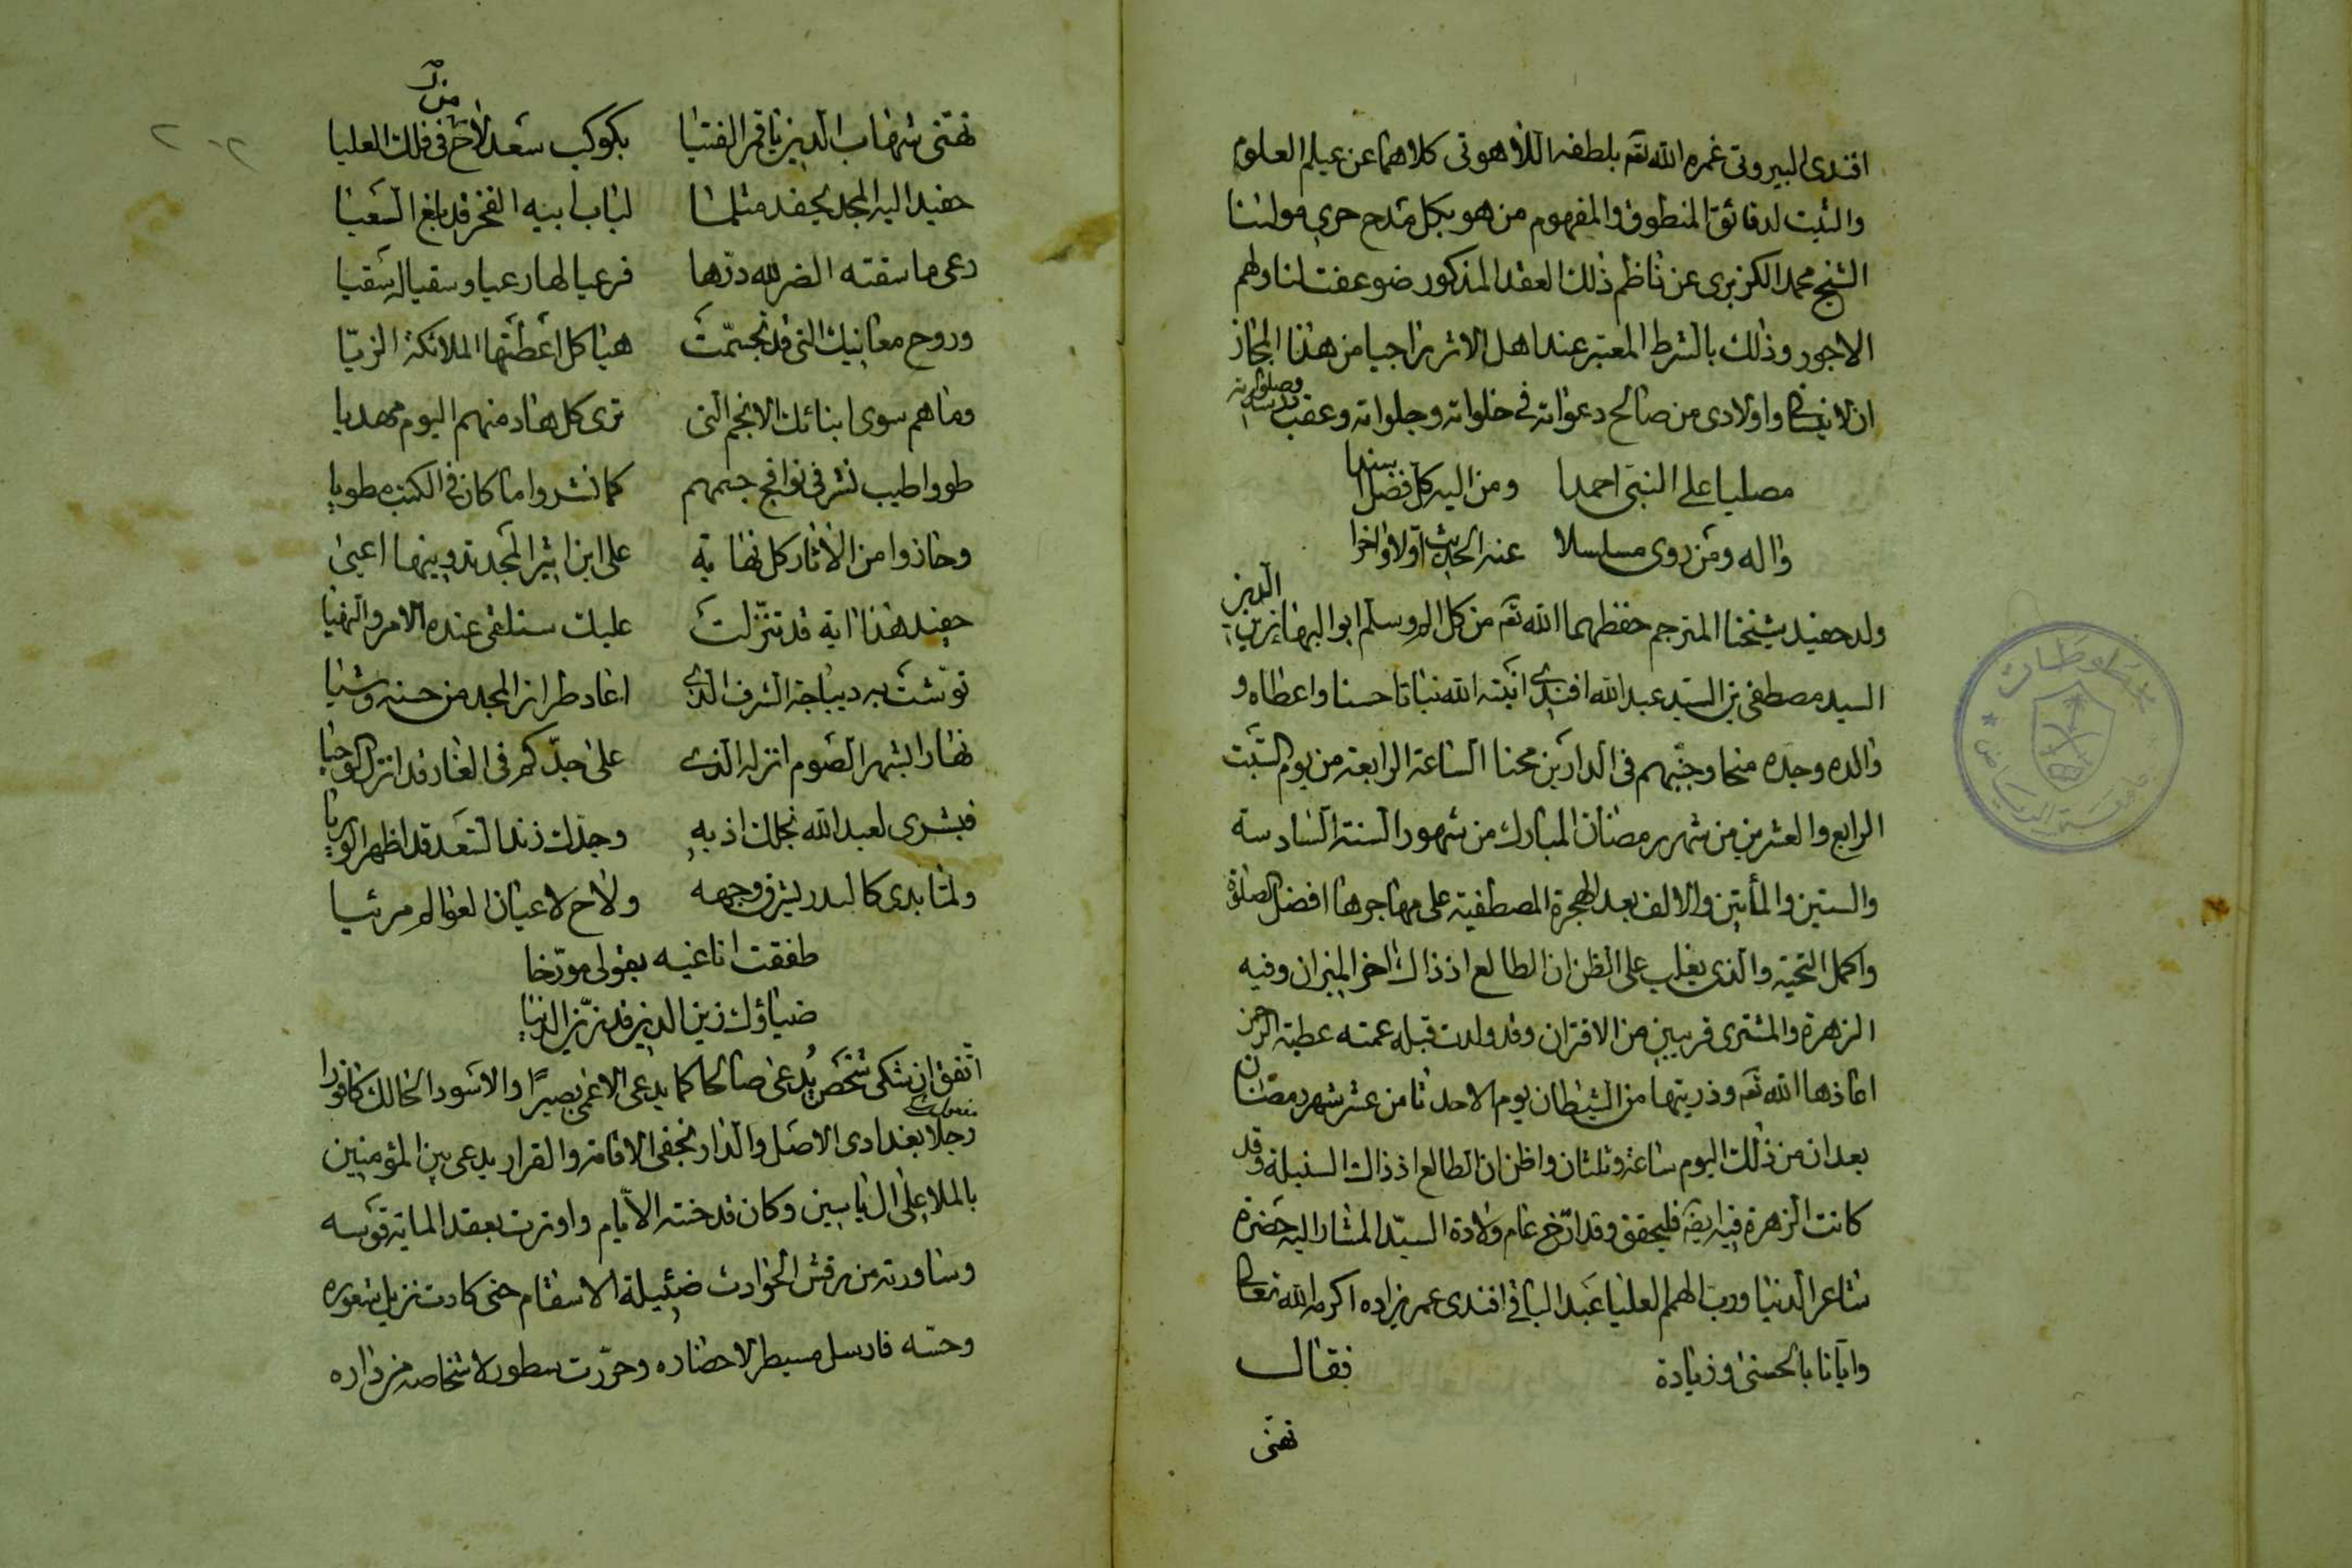 افندى البيروتى غمره الله تعم بلطفه اللاهوتى كلاهما عن عيلم العلوم
والثبت لدقائق المنطوق والمفهوم من هو بكل مدح حرى مولنا
الشيخ محمد الكزبرى عن ناظم ذلك العقد المذكور ضوعفت لنا ولهم
الاجور وذلك بالشرط المعتبر عند اهل الاثر راجيا من هذا المجاز
ان لا ينسانى واولادى من صالح دعواته فى خلواته وجلواته وعقب
مصليا على النبى احمدا ومن اليه كل فضل
واله ومن روى مسلسلا عنه الحديث اولا واخرا
ولد حفيد شيخنا المترجم حفظهما الله تعم من كل الم وسلم ابو البهاء زين الدين
السيد مصطفى بن السيد عبد الله افندى انبته الله نباتا حسنا واعطاه و
والده وجده منحا وجنبهم فى الدارين محنا الساعة الرابعة من يوم السبت
الرابع والعشرين من شهر رمضان المبارك من شهور السنة السادسة
والستين والمأتين والالف بعد الهجرة المصطفية على مهاجرها افضل الصلوة
واكمل التحية والذى يغلب على الظن ان الطالع اذ ذاك اخر الميزان وفيه
الزهرة والمشترى قريبين من الاقتران وقد ولدت قبله عمته عطية الرحمن
اعاذها الله تعم وذريتها من الشيطان يوم الاحد ثامن عشر شهر رمضان
بعد ان من ذلك اليوم ساعة وثلثان واظن ان الطالع اذ ذاك السنبلة وقد
كانت الزهرة فيه ايضا فليحقق وقد ارخ عام ولادة السيد المشار اليه حضرة
شاعر الدنيا ورب الهمم العليا عبد الباقى افندى عمرى زاده اكرمه الله تعالى
وايانا بالحسنى وزيادة فقال
تهنى
تهنى شهاب الدين يا قمر الفتيا بكوكب سعد لاح فى فلك العليا
حفيد اليه المجد يحفد مثلما لباب ابيه الفخر قد بلغ السعيا
رعى ما سقته الضر لله درها فرعيا لها رعيا وسقيا له سقيا
وروح معانيك التى قد تجسمت هياكل اعطتها الملائكة الزيا
وما هم سوى ابنائك الانجم التى ترى كل هاد منهم اليوم مهديا
طووا طيب نشر فى نوافج جسمهم كما نشروا ما كان فى الكتب مطويا
وحازوا من الاثار كل نهاية على ابن اثير المجد تدوينها اعيى
حفيد هذا اية قد تنزلت عليك ستلقى عنده الامر والنهيا
توشت به ديباجة الشرف الذى اعاد طراز المجد من حسنه وشيا
نهارا بشهر الصوم انزله الذى على جدكم فى الغار قد انزل الوحيا
فبشرى لعبد الله نجلك اذ به وجدك زند السعد قد اظهر الوريا
ولما بدى كالبدر يشرق وجهه ولاح لاعيان العوالم مرئيا
طفقت اناغيه بقولى مورخا
ضياؤك زين الدين قد زين الدنيا
اتفق ان شكى شخص يدعى صالحا كما يدعى الاعمى بصيرا والاسود الحالك كافورا
رجلا بغدادى الاصل والدار نجفى الاقامة والقرار يدعى بين المؤمنين
بالملا على ال ياسين وكان قد خنته الايام واوترت بعقد الماية قوسه
وساورته من رقش الحوادث ضئيلة الاسقام حتى كادت تزيل شعوره
وحسه فارسل مسيطر لاحضاره وحررت سطور لاشخاصه من داره